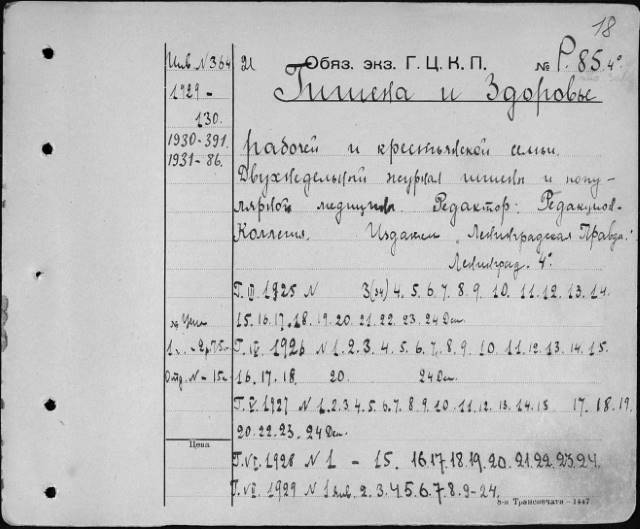 18
Инв N 364 21 Обяз. экз. Г. Ц. К. П. № Р. 85. 4°
1929 - Гигиена и Здоровье
130.
1930-391. рабочей и крестьянской семьи.
1931-86.
Двухнедельный журнал гигиены и попу-
лярной медицины. Редактор: Редакцион.
Коллегия. Издание „Ленинградская Правда."
Ленинград. 4°.
Г. III. 1925 N 3(34) 4. 5. 6. 7. 8. 9. 10. 11. 12. 13. 14.
15. 16. 17. 18. 19. 20. 21. 22. 23. 24 Дек.
1 2р75- Г. IV. 1926 N 1. 2. 3. 4. 5. 6. 7. 8. 9. 10. 11. 12. 13. 14. 15.
Отд. N - 15к 16. 17. 18. 20. 24 Дек.
Г. V. 1927 N 1. 2. 3. 4. 5. 6. 7. 8. 9. 10. 11. 12. 13. 14. 15 17. 18. 19.
20. 22. 23. 24 Дек.
Цена
Г. VI. 1928 N 1 - 15. 16. 17. 18. 19. 20. 21. 22. 23. 24.
Г. VII. 1929 N 1 янв. 2. 3. 4. 5. 6. 7. 8. 9 - 24.
8-я Транспечати - 1447